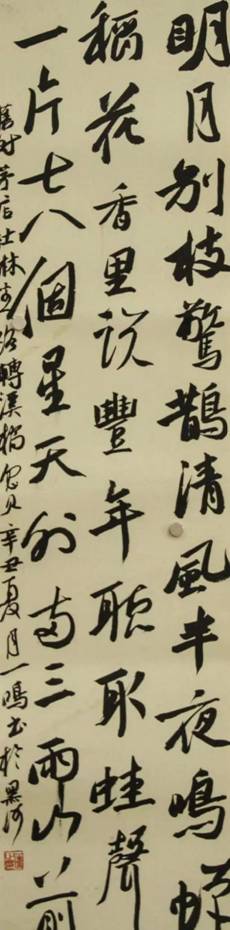 明月别枝驚鵲清風半夜鳴蟬
稻花香里說豐年聽取蛙聲
一片七八個星天外兩三雨山前
舊时茅店社林去路轉溪橋忽見辛丑夏月一鳴书於墨河